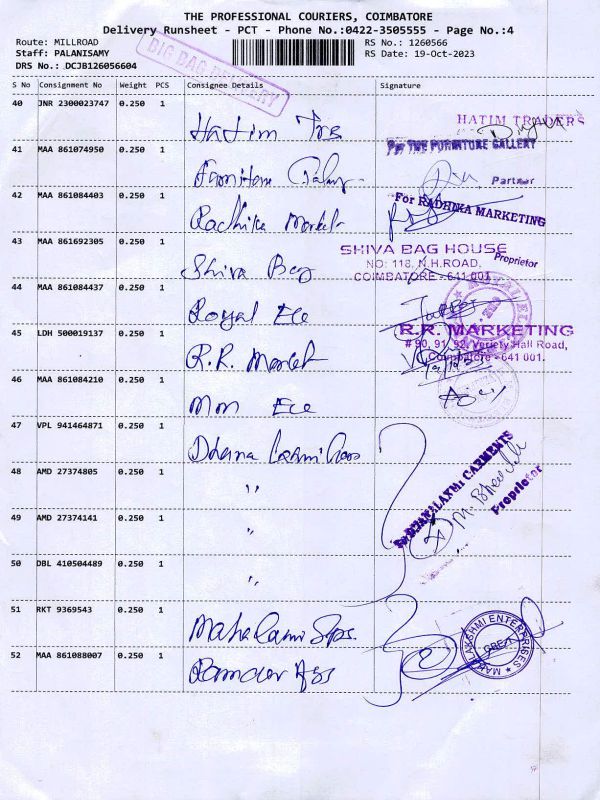 THE PROFESSIONAL COURIERS, COIMBATORE
Delivery Runsheet - PCT - Phone No.:0422-3505555 - Page No.:4
Route: MILLROAD
RS No.: 1260566
Staff: PALANISAMY
RS Date: 19-Oct-2023
DRS No.: DCJB126056604
BIG BAG DELIVERY
S No Consignment No Weight PCS Consignee Details Signature
40 JNR 2300023747 0.250 1
Hatim Trs
HATIM TRADERS
41 MAA 861074950 0.250 1
For THE FURNITURE GALLERY
Partner
42 MAA 861084403 0.250 1
Radhika Market
For RADHIKA MARKETING
Proprietor
43 MAA 861692305 0.250 1
Shiva Bag
SHIVA BAG HOUSE
NO: 118, N.H.ROAD,
COIMBATORE - 641 001
44 MAA 861084437 0.250 1
Royal Ele
45 LDH 500019137 0.250 1
R.R. Market
R.R. MARKETING
# 90, 91, 92, Veriety Hall Road,
Coimbatore - 641 001.
46 MAA 861084210 0.250 1
Mon Ele
47 VPL 941464871 0.250 1
48 AMD 27374805 0.250 1
"
Proprietor
49 AMD 27374141 0.250 1
"
50 DBL 410504489 0.250 1
"
51 RKT 9369543 0.250 1
MAHALAKSHMI ENTERPRISES
CBE-1
52 MAA 861088007 0.250 1